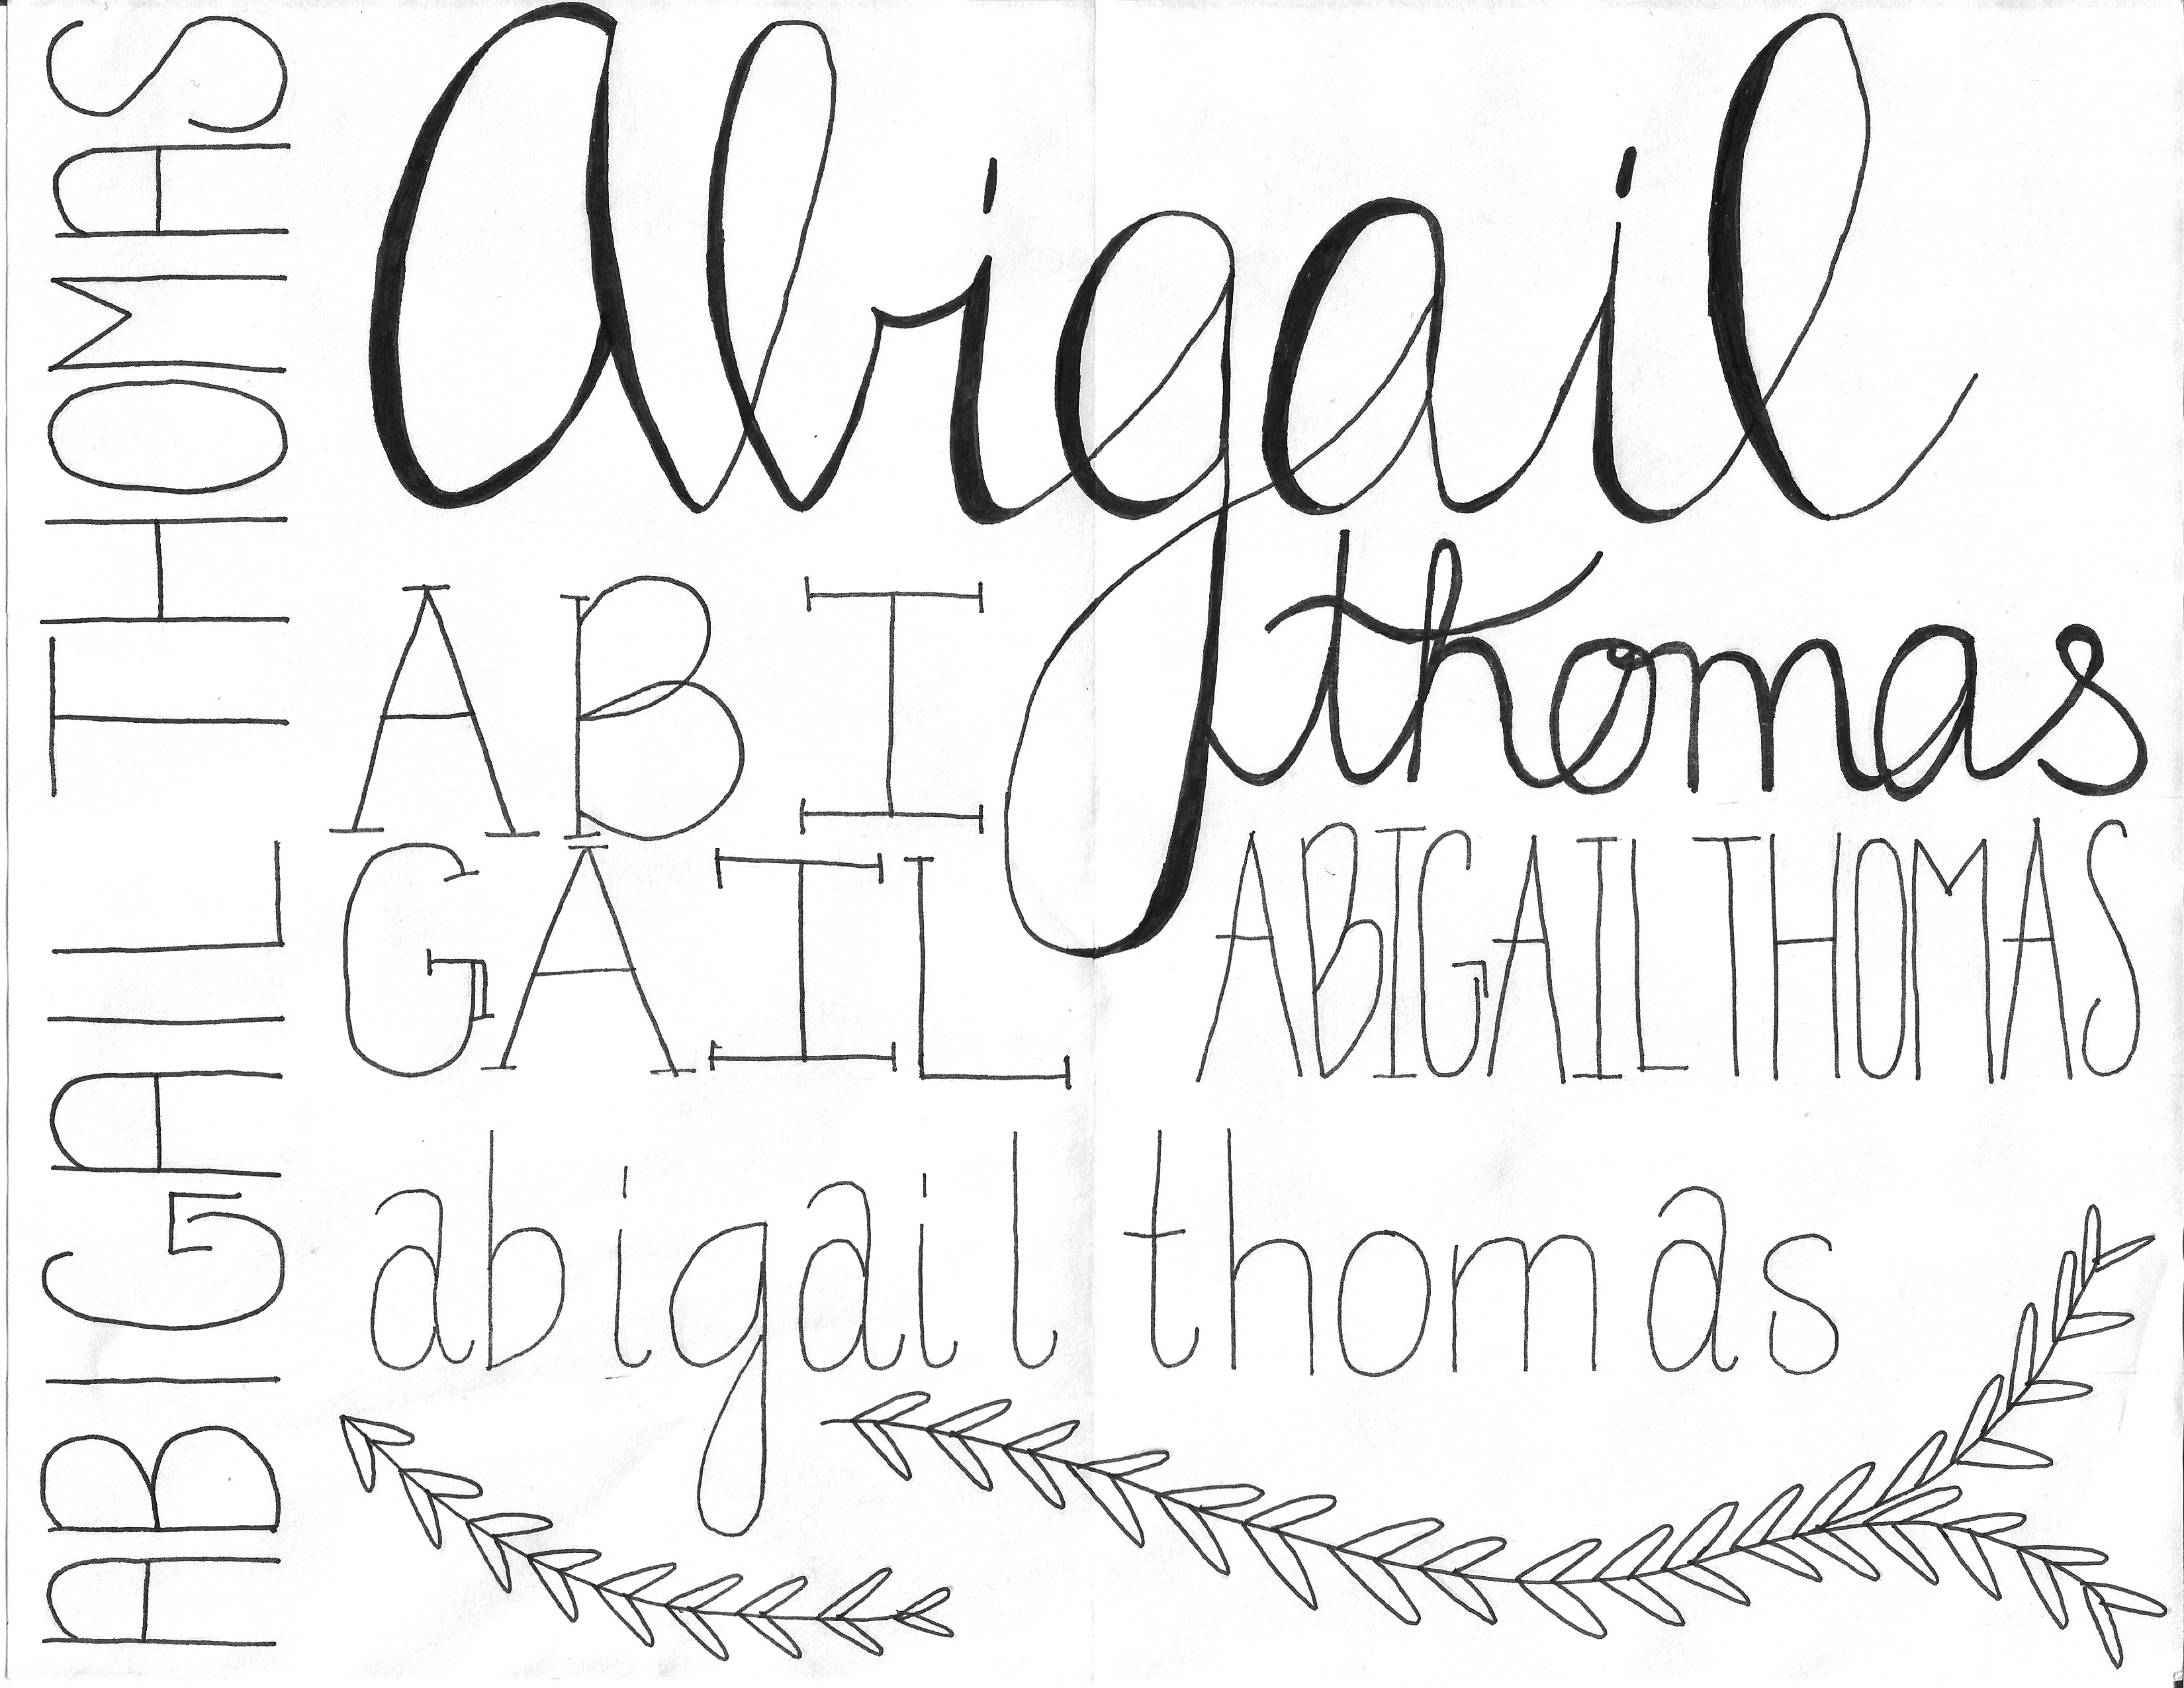 ABIGAIL THOMAS
Abigail
thomas
ABI
GAIL
ABIGAIL THOMAS
abigail thomas